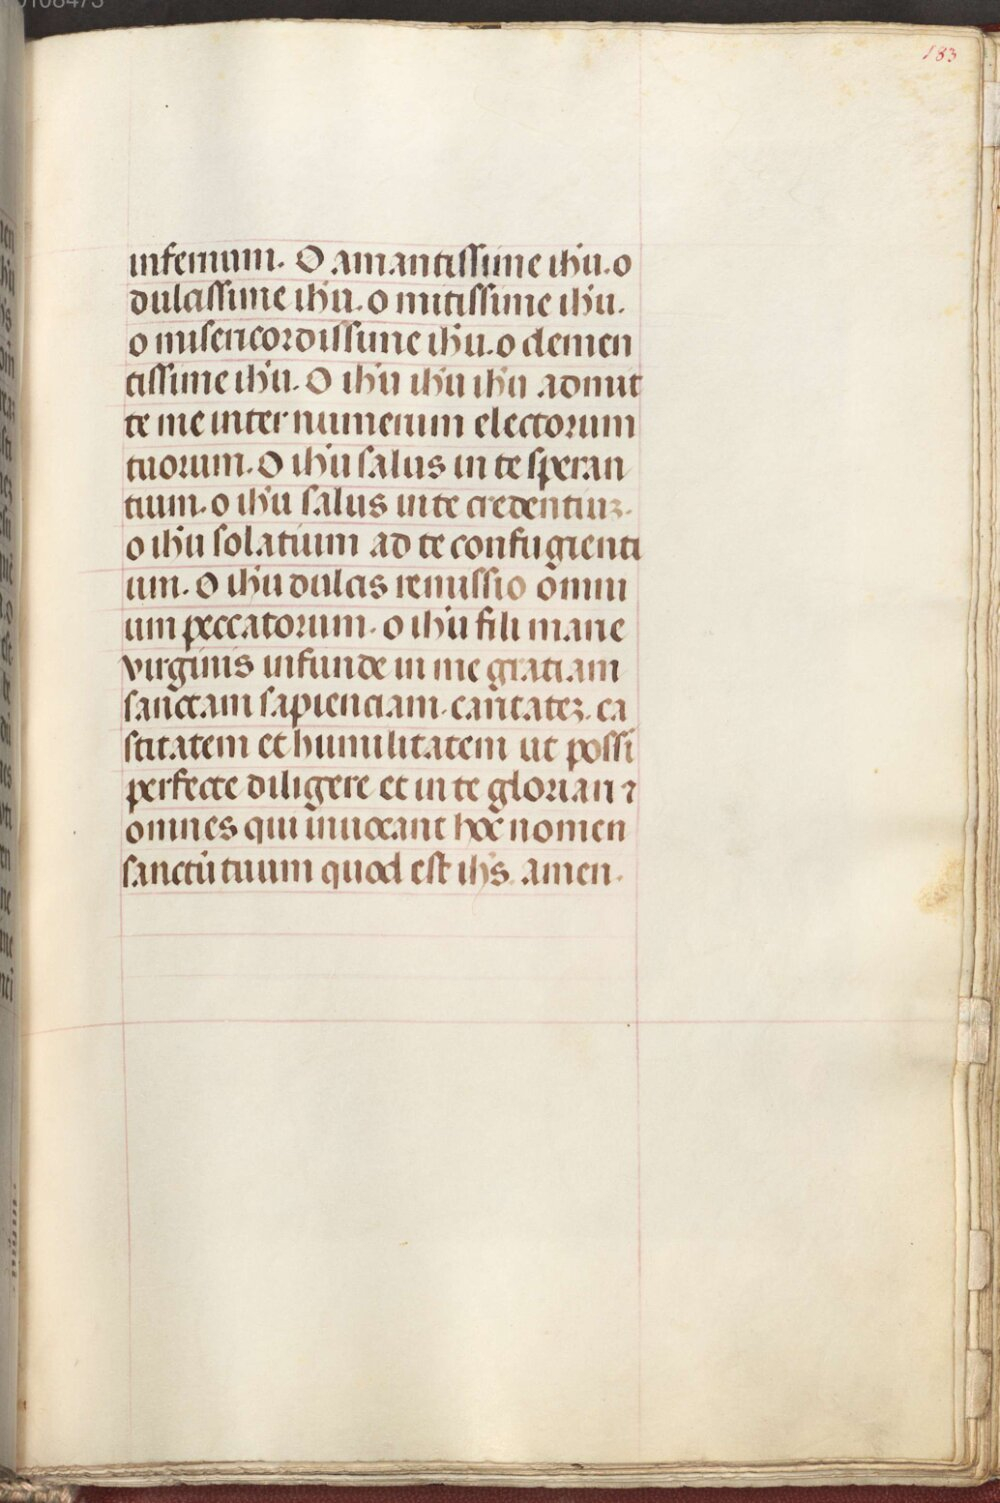 183
infernum. O amantissime ihu. o
dulcissime ihu. o mitissime ihu.
o misericordissime ihu. o clemen
tissime ihu. O ihu ihu ihu admit
te me inter numerum electorum
tuorum. O ihu salus in te speran
tium. o ihu salus in te credentiuʒ.
o ihu solatium ad te confugienti
um. O ihu dulcis remissio omni
um peccatorum. o ihu fili marie
virginis infunde in me gratiam
sanctam sapienciam. caritateʒ. ca
stitatem et humilitatem ut possi
perfecte diligere et in te gloriari ⁊
omnes qui invocant hoc nomen
sanctū tuum quod est ihs. amen.